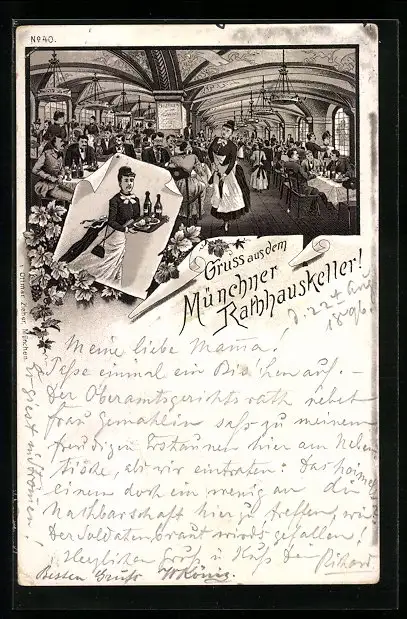 No 40.
Gruss aus dem
Münchner
Rathhauskeller!
Ottmar Zieher, München
d. 22t
1896
Meine liebe Mama!
Passe einmal ein Bischen auf. –
Der Oberamtsgerichtsrath nebst
Frau Gemahlin sass zu meinem
freudigen Erstaunen hier am Neben
tische, als wir eintraten: Das heimelt
einem doch ein wenig an die
Nachbarschaft hier zu treffen, wie's
der Soldatenbraut wirds gefallen!
Herzlichen Gruss u Kuss Dein Richard
Besten Gruss W König.